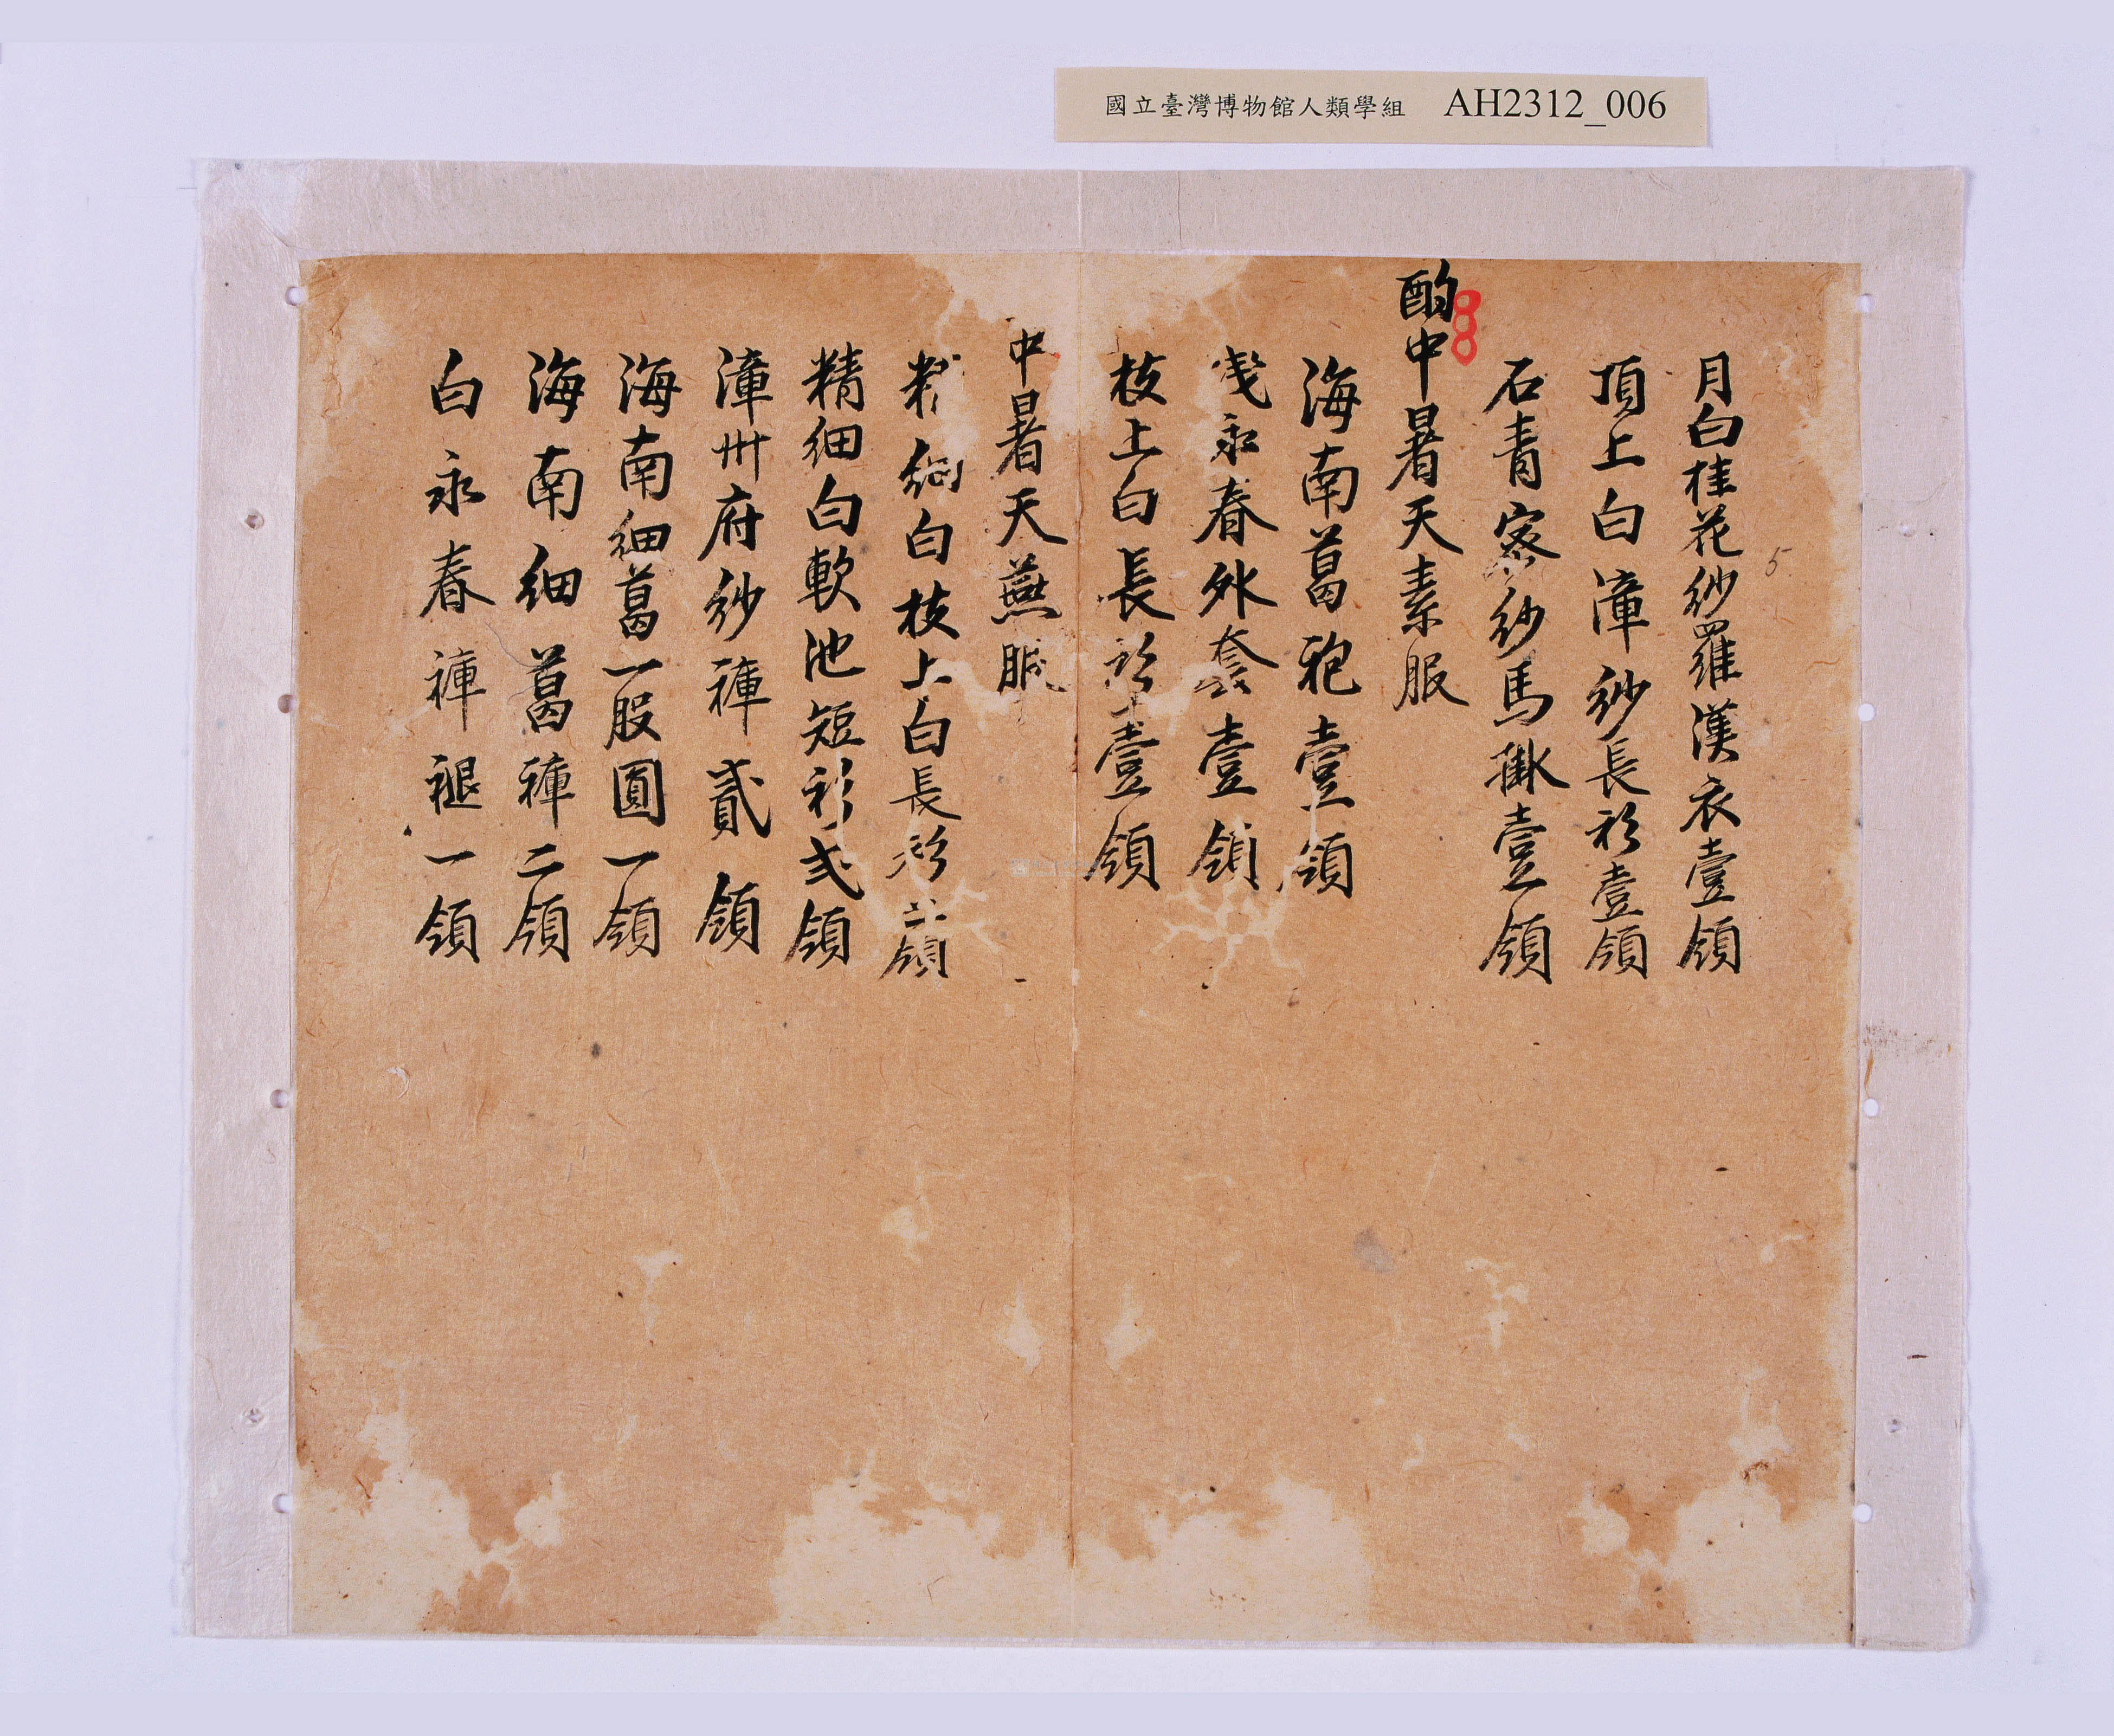 國立臺灣博物館人類學組 AH2312_006
5
月白桂花紗羅漢衣壹領
頂上白漳紗長衫壹領
石青密紗馬褂壹領
酌中暑天素服
海南葛袍壹領
淺永春外套壹領
枝上白長衫壹領
中暑天燕服
精細白枝上白長衫二領
精細白軟池短衫弍領
漳州府紗褲貳領
海南細葛一股圓一領
海南細葛褲二領
白永春褲褪一領